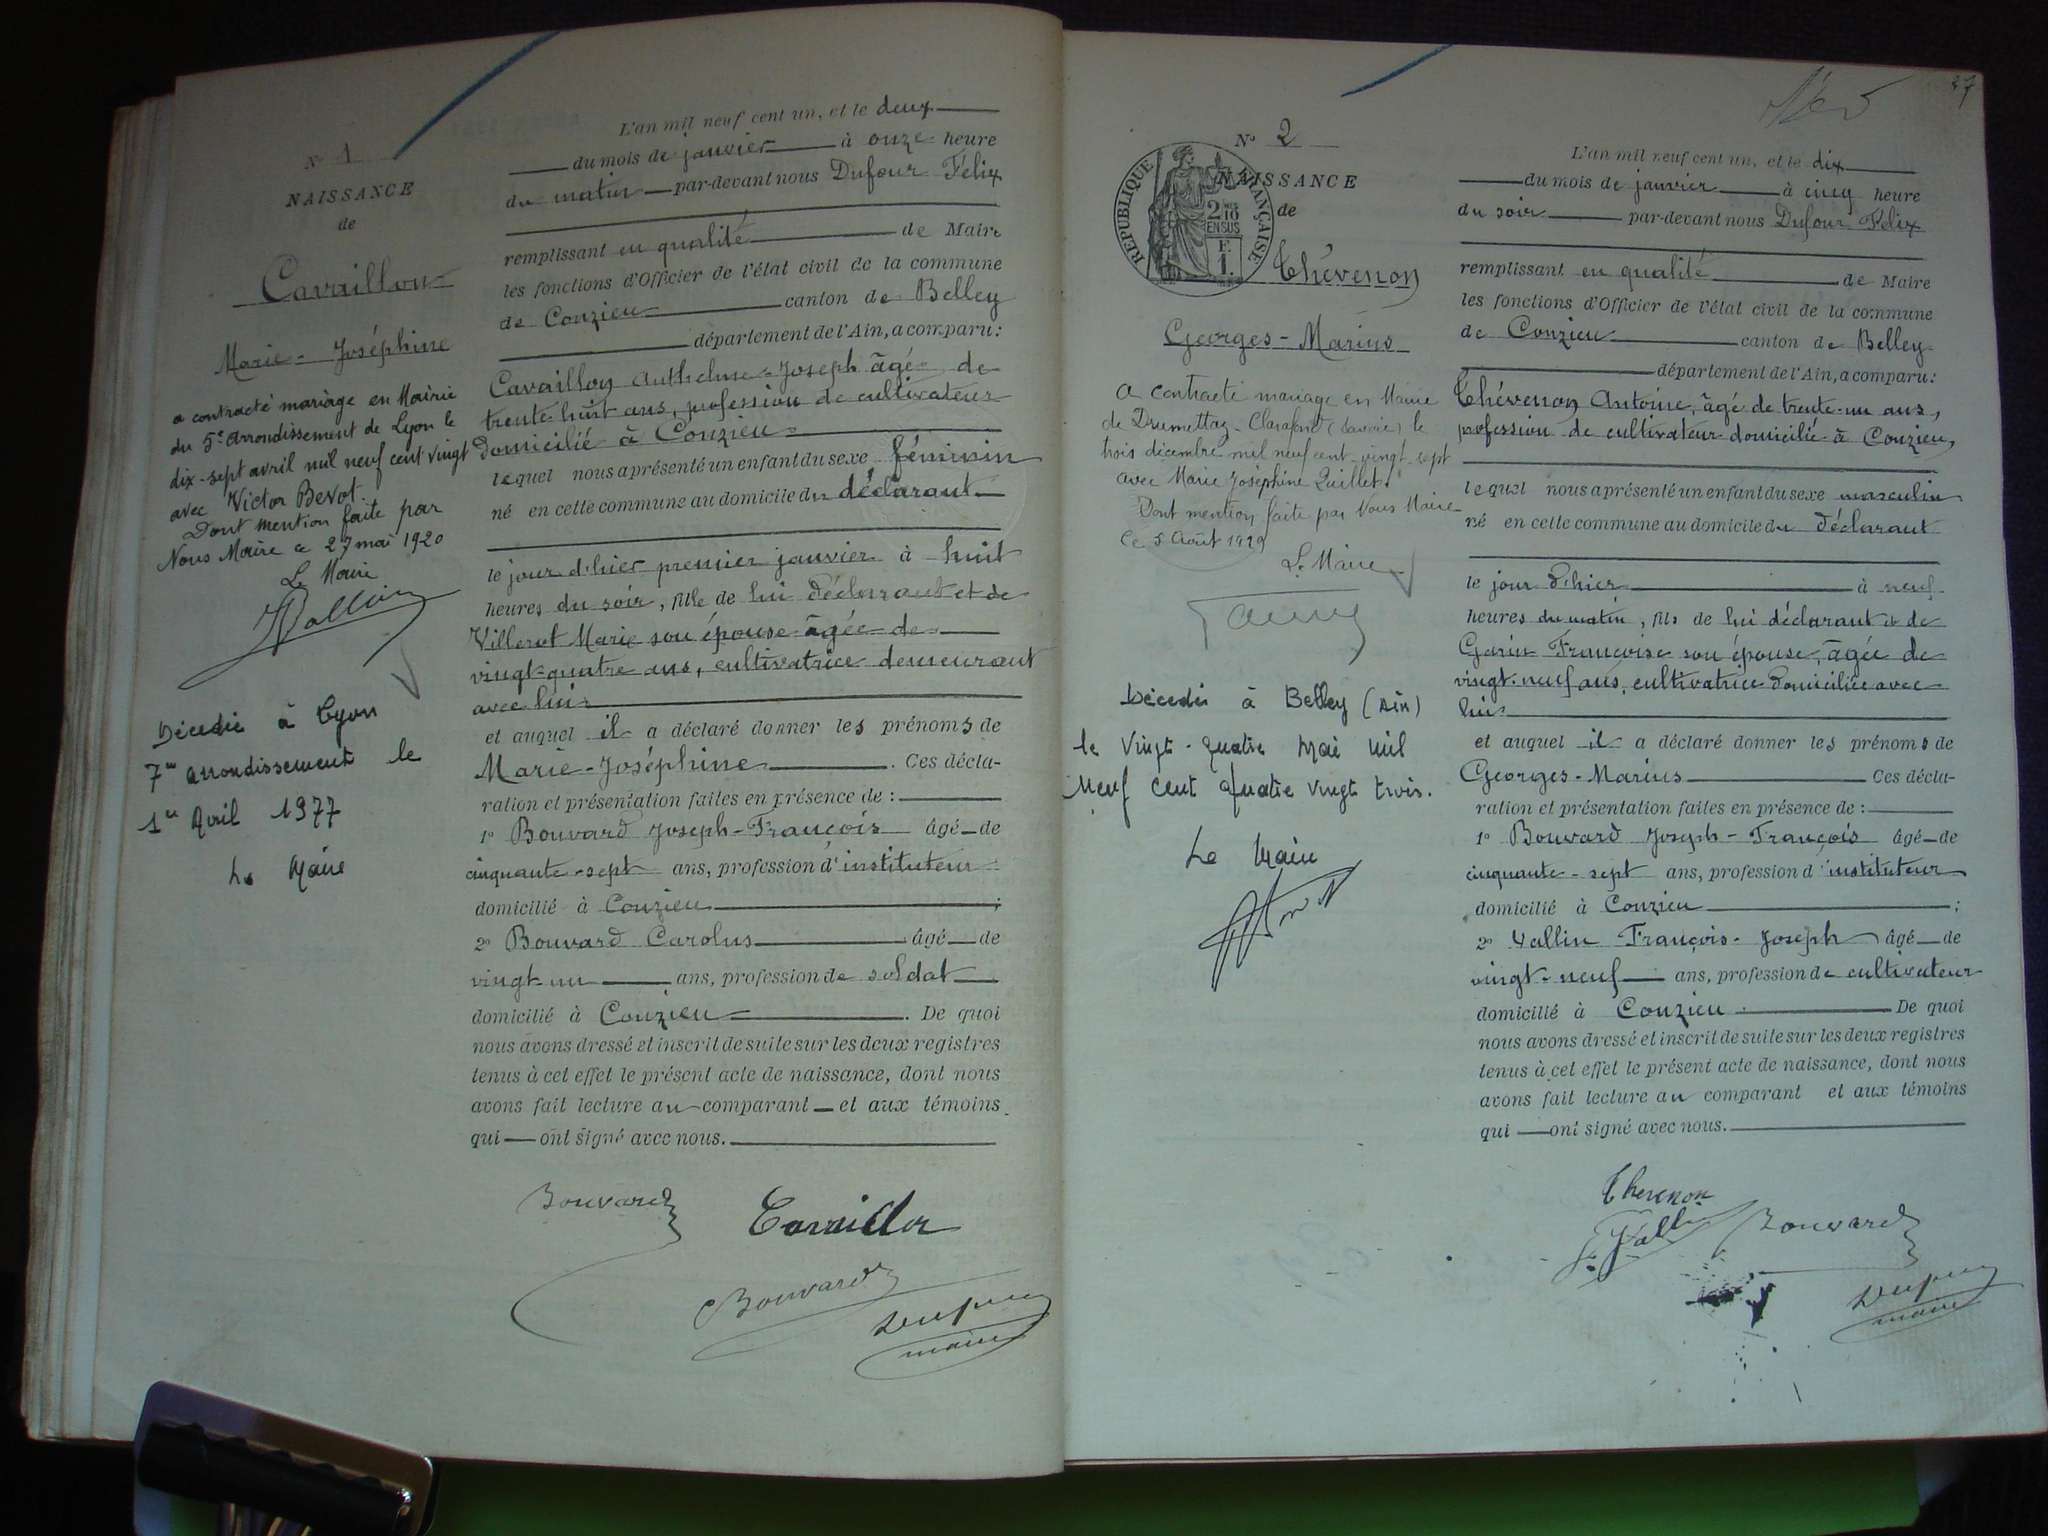 N° 1
NAISSANCE
de
Cavaillon
Marie-Joséphine
a contracté mariage en Mairie
du 5e arrondissement de Lyon le
dix-sept avril mil neuf cent vingt
avec Victor Bevot.
Dont mention faite par
Nous Maire ce 27 mai 1920
Le Maire
Décédée à Lyon
7me arrondissement le
1er Avril 1977
Le Maire
L'an mil neuf cent un, et le deux
du mois de janvier à onze heure
du matin par-devant nous Dufour Félix
remplissant en qualité de Maire
les fonctions d'Officier de l'état civil de la commune
de Conzieu canton de Belley
département de l'Ain, a comparu :
Cavaillon Anthelme-Joseph âgé de
trente-huit ans, profession de cultivateur
domicilié à Conzieu
lequel nous a présenté un enfant du sexe féminin
né en cette commune au domicile du déclarant
le jour d'hier premier janvier à huit
heures du soir, fille de lui déclarant et de
Villerot Marie son épouse âgée de
vingt-quatre ans, cultivatrice demeurant
avec lui
et auquel il a déclaré donner les prénoms de
Marie-Joséphine. Ces décla-
ration et présentation faites en présence de :
1° Bouvard Joseph-François âgé de
cinquante-sept ans, profession d'instituteur
domicilié à Conzieu ;
2° Bouvard Carolus âgé de
vingt-un ans, profession de soldat
domicilié à Conzieu. De quoi
nous avons dressé et inscrit de suite sur les deux registres
tenus à cet effet le présent acte de naissance, dont nous
avons fait lecture au comparant et aux témoins
qui ont signé avec nous.
Bouvard Cavaillon
Bouvard
Dufour
maire
37
N° 2
NAISSANCE
de
RÉPUBLIQUE FRANÇAISE
2/10
EN SUS
F.
1.
Thévenon
Georges-Marius
a contracté mariage en Mairie
de Drumettaz-Clarafond (Savoie) le
trois décembre mil neuf cent vingt-sept
avec Marie Joséphine Quillet.
Dont mention faite par Nous Maire
Ce 5 Août 1929
Le Maire
Décédé à Belley (Ain)
le vingt-quatre Mai mil
neuf cent quatre vingt trois.
Le Maire
L'an mil neuf cent un, et le dix
du mois de janvier à cinq heure
du soir par-devant nous Dufour Félix
remplissant en qualité de Maire
les fonctions d'Officier de l'état civil de la commune
de Conzieu canton de Belley
département de l'Ain, a comparu :
Thévenon Antoine, âgé de trente-un ans,
profession de cultivateur domicilié à Conzieu,
lequel nous a présenté un enfant du sexe masculin
né en cette commune au domicile du déclarant
le jour d'hier à neuf
heures du matin, fils de lui déclarant et de
Garin Françoise son épouse, âgée de
vingt-neuf ans, cultivatrice domiciliée avec
lui
et auquel il a déclaré donner les prénoms de
Georges-Marius Ces décla-
ration et présentation faites en présence de :
1° Bouvard Joseph-François âgé de
cinquante-sept ans, profession d'instituteur
domicilié à Conzieu ;
2° Vallin François-Joseph âgé de
vingt-neuf ans, profession de cultivateur
domicilié à Conzieu. De quoi
nous avons dressé et inscrit de suite sur les deux registres
tenus à cet effet le présent acte de naissance, dont nous
avons fait lecture au comparant et aux témoins
qui ont signé avec nous.
Thevenon
Bouvard
Dufour
maire